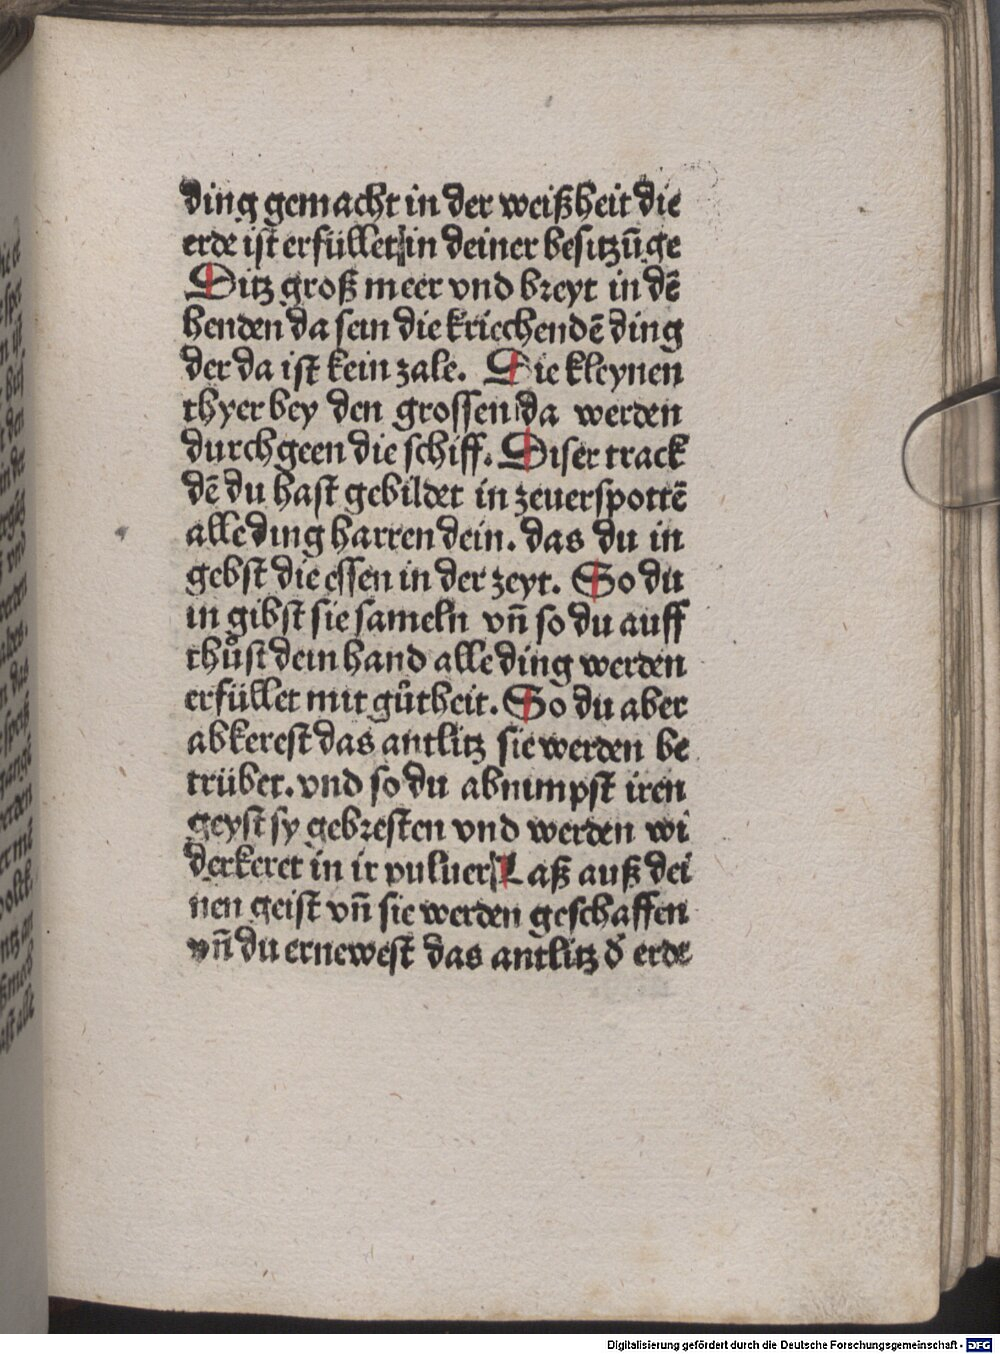 ding gemacht in der weißheit die
erde ist erfüllet in deiner besitzūge
Ditz groß meer vnd breyt in dē
henden da sein die kriechendē ding
der da ist kein zale. Die kleynen
thyer bey den grossen da werden
durchgeen die schiff. Diser track
dē du hast gebildet in zeuerspottē
alle ding harren dein. das du in
gebst die essen in der zeyt. So du
in gibst sie sameln vn̄ so du auff
thůst dein hand alle ding werden
erfüllet mit gůtheit. So du aber
abkerest das antlitz sie werden be
trübet. vnd so du abnimpst iren
geyst sy gebresten vnd werden wi
derkeret in ir puluer Laß auß dei
nen geist vn̄ sie werden geschaffen
vn̄ du ernewest das antlitz d̄ erde
Digitalisierung gefördert durch die Deutsche Forschungsgemeinschaft - DFG